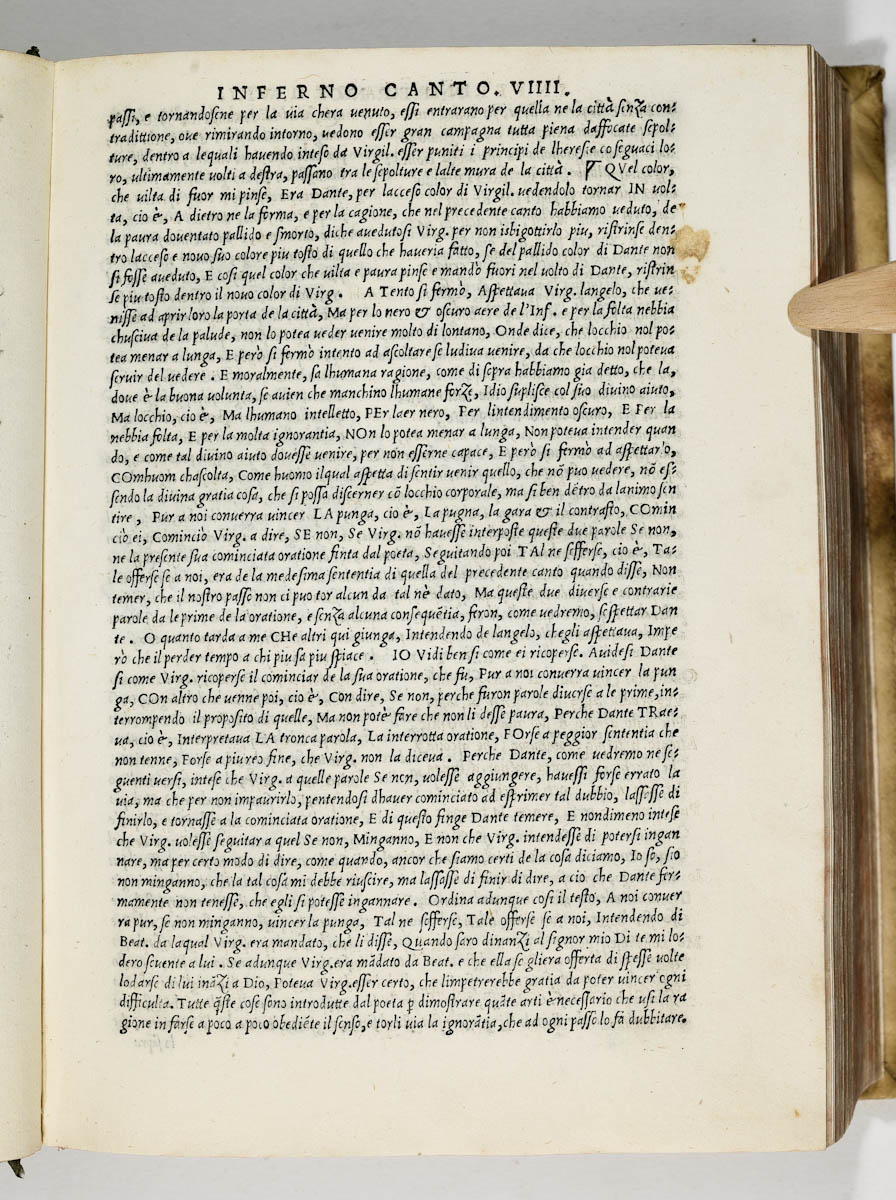 INFERNO CANTO. VIIII.
passi, e tornandosene per la uia chera uenuto, essi entrarano per quella ne la città senza con-
tradittione, oue rimirando intorno, uedono esser gran campagna tutta piena daffocate sepol-
ture, dentro a lequali hauendo inteso da Virgil. esser puniti i principi de lheresie co seguaci lo-
ro, ultimamente uolti a destra, passano tra le sepolture e lalte mura de la città. ¶ QVel color,
che uilta di fuor mi pinse, Era Dante, per lacceso color di Virgil. uedendolo tornar IN uol-
ta, cio è, A dietro ne la forma, e per la cagione, che nel precedente canto habbiamo ueduto, de
la paura douentato pallido e smorto, diche auedutosi Virg. per non isbigottirlo piu, ristrinse den-
tro lacceso e nouo suo colore piu tosto di quello che haueria fatto, se del pallido color di Dante non
si fosse aueduto, E cosi quel color che uilta e paura pinse e mandò fuori nel uolto di Dante, ristrin
se piu tosto dentro il nouo color di Virg. A Tento si fermò, Aspettaua Virg. langelo, che ue-
nisse ad aprir loro la porta de la città, Ma per lo nero & oscuro aere de l'Inf. e per la folta nebbia
chusciua de la palude, non lo potea ueder uenire molto di lontano, Onde dice, che locchio nol po-
tea menar a lunga, E però si fermò intento ad ascoltare se ludiua uenire, da che locchio nol poteua
seruir del uedere. E moralmente, sa lhumana ragione, come di sopra habbiamo gia detto, che la,
doue è la buona uolunta, se auien che manchino lhumane forze, Idio suplisce col suo diuino aiuto,
Ma locchio, cio è, Ma lhumano intelletto, PEr laer nero, Per lintendimento oscuro, E Per la
nebbia folta, E per la molta ignorantia, NOn lo potea menar a lunga, Non poteua intender quan
do, e come tal diuino aiuto douesse uenire, per non esserne capace, E però si fermò ad aspettarlo,
COmhuom chascolta, Come huomo ilqual aspetta di sentir uenir quello, che nõ puo uedere, nõ es-
sendo la diuina gratia cosa, che si possa discerner cõ locchio corporale, ma si ben dẽtro da lanimo sen
tire, Pur a noi conuerra uincer LA punga, cio è, La pugna, la gara & il contrasto, COmin
ciò ei, Cominciò Virg. a dire, SE non, Se Virg. nõ hauesse interposte queste due parole Se non,
ne la presente sua cominciata oratione finta dal poeta, Seguitando poi TAl ne sefferse, cio è, Ta-
le offerse se a noi, era de la medesima sententia di quella del precedente canto quando disse, Non
temer, che il nostro passo non ci puo tor alcun da tal nè dato, Ma queste due diuerse e contrarie
parole da le prime de la oratione, e senza alcuna consequẽtia, feron, come uedremo, sospettar Dan
te. O quanto tarda a me CHe altri qui giunga, Intendendo de langelo, chegli aspettaua, Impe
rò che il perder tempo a chi piu sa piu spiace. IO Vidi ben si come ei ricoperse. Auidesi Dante
si come Virg. ricoperse il cominciar de la sua oratione, che fu, Pur a noi conuerra uincer la pun
ga, COn altro che uenne poi, cio è, Con dire, Se non, perche furon parole diuerse a le prime, in-
terrompendo il proposito di quelle, Ma non potè fare che non li desse paura, Perche Dante TRae-
ua, cio è, Interpretaua LA tronca parola, La interrotta oratione, FOrse a peggior sententia che
non tenne, Forse a piu reo fine, che Virg. non la diceua. Perche Dante, come uedremo ne se-
guenti uersi, intese che Virg. a quelle parole Se non, uolesse aggiungere, hauessi forse errato la
uia, ma che per non impaurirlo, pentendosi dhauer cominciato ad esprimer tal dubbio, lassesse di
finirlo, e tornasse a la cominciata oratione, E di questo finge Dante temere, E nondimeno intese
che Virg. uolesse seguitar a quel Se non, Minganno, E non che Virg. intendesse di potersi ingan
nare, ma per certo modo di dire, come quando, ancor che siamo certi de la cosa diciamo, Io so, sio
non minganno, che la tal cosa mi debbe riuscire, ma lassasse di finir di dire, a cio che Dante fer-
mamente non tenesse, che egli si potesse ingannare. Ordina adunque cosi il testo, A noi conuer
ra pur, se non minganno, uincer la punga, Tal ne sefferse, Tale offerse se a noi, Intendendo di
Beat. da laqual Virg. era mandato, che li disse, Quando saro dinanzi al signor mio Di te mi lo-
dero souente a lui. Se adunque Virg. era mãdato da Beat. e che ella se gliera offerta di spesse uolte
lodarse di lui inãzi a Dio, Poteua Virg. esser certo, che limpetrerebbe gratia da poter uincer ogni
difficulta. Tutte q̃ste cose sono introdutte dal poeta p dimostrare quãte arti è necessario che usi la ra
gione in farse a poco a poco obediẽte il senso, e torli uia la ignorãtia, che ad ogni passo lo fa dubbitare.